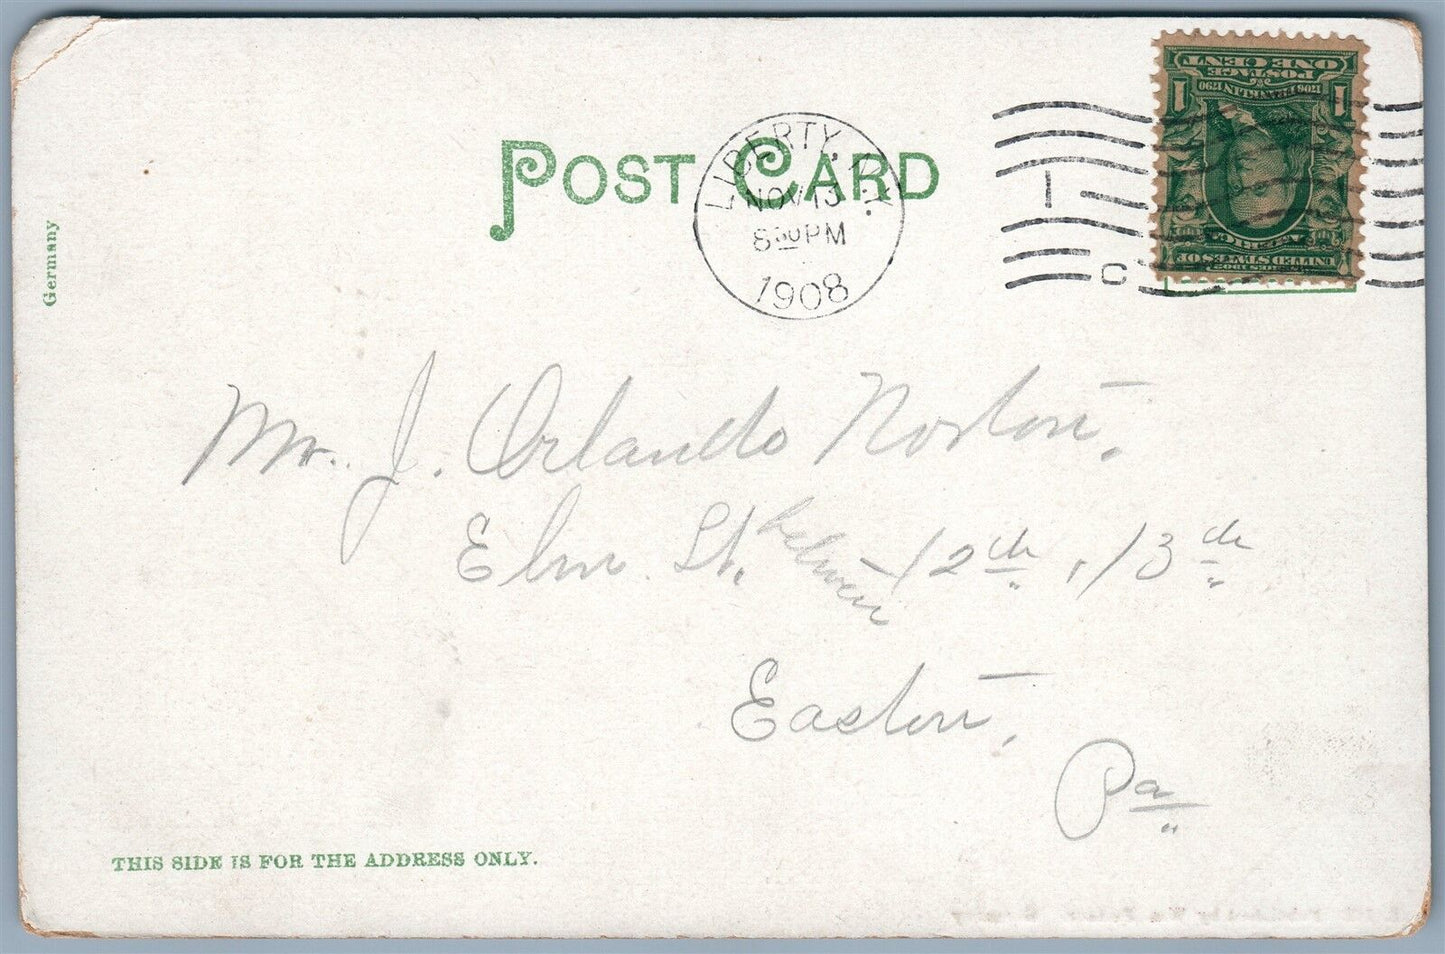 POST CARD
Germany
LIBERTY, N.Y.
NOV 13
8 30 PM
1908
1
C
ONE CENT
POSTAGE
1 FRANKLIN 1790 1
UNITED STATES OF
AMERICA
SERIES 1902
Mr. J. Orlando Norton.
Elm St. between 12th, 13th
Easton,
Pa
THIS SIDE IS FOR THE ADDRESS ONLY.